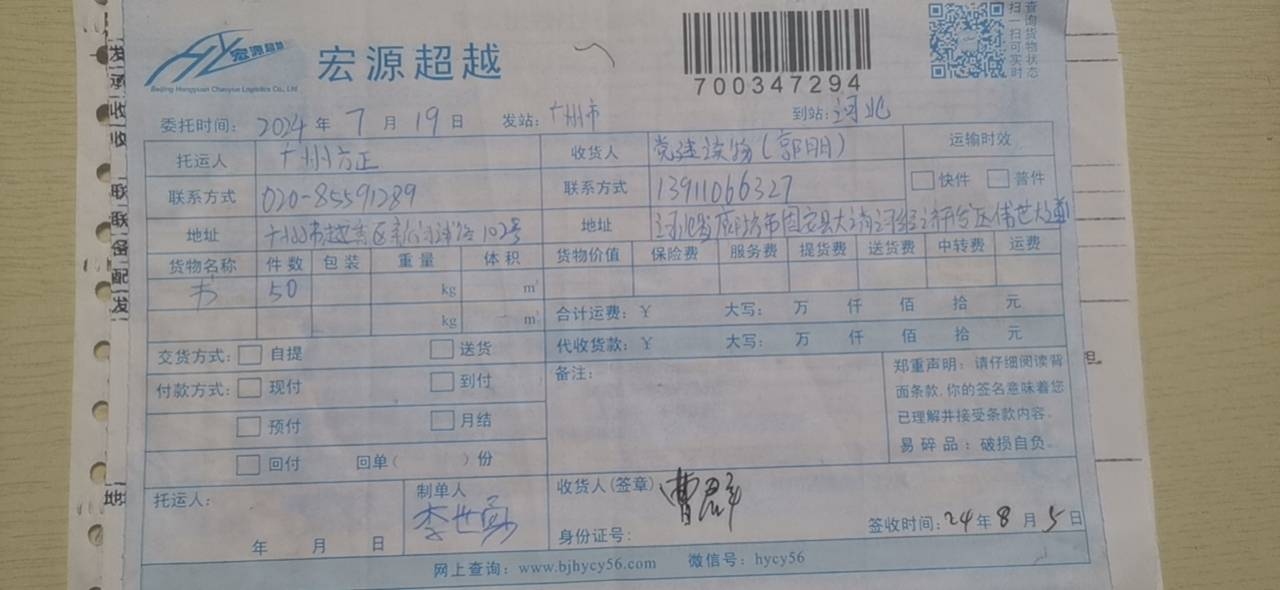 宏源超越
Beijing Hongyuan Chaoyue Logistics Co., Ltd
宏源超越
700347294
扫一扫可实时
查询货物状态
委托时间: 2024 年 7 月 19 日 发站: 广州市 到站: 河北
托运人 广州方正 收货人 党建读物(郭明) 运输时效
联系方式 020-85591289 联系方式 13911066327 快件 普件
地址 广州市越秀区 102号 地址 河北省廊坊市固安县大清河经济开发区
货物名称 件数 包装 重量 体积 货物价值 保险费 服务费 提货费 送货费 中转费 运费
书 50 kg m³
kg m³ 合计运费: ¥ 大写: 万 仟 佰 拾 元
交货方式: 自提 送货 代收货款: ¥ 大写: 万 仟 佰 拾 元
付款方式: 现付 到付 备注:
预付 月结
回付 回单( )份
郑重声明: 请仔细阅读背
面条款,你的签名意味着您
已理解并接受条款内容.
易碎品: 破损自负.
托运人: 制单人 李世勇 收货人(签章) 曹群
年 月 日 身份证号: 签收时间: 24年8月5日
网上查询: www.bjhycy56.com 微信号: hycy56